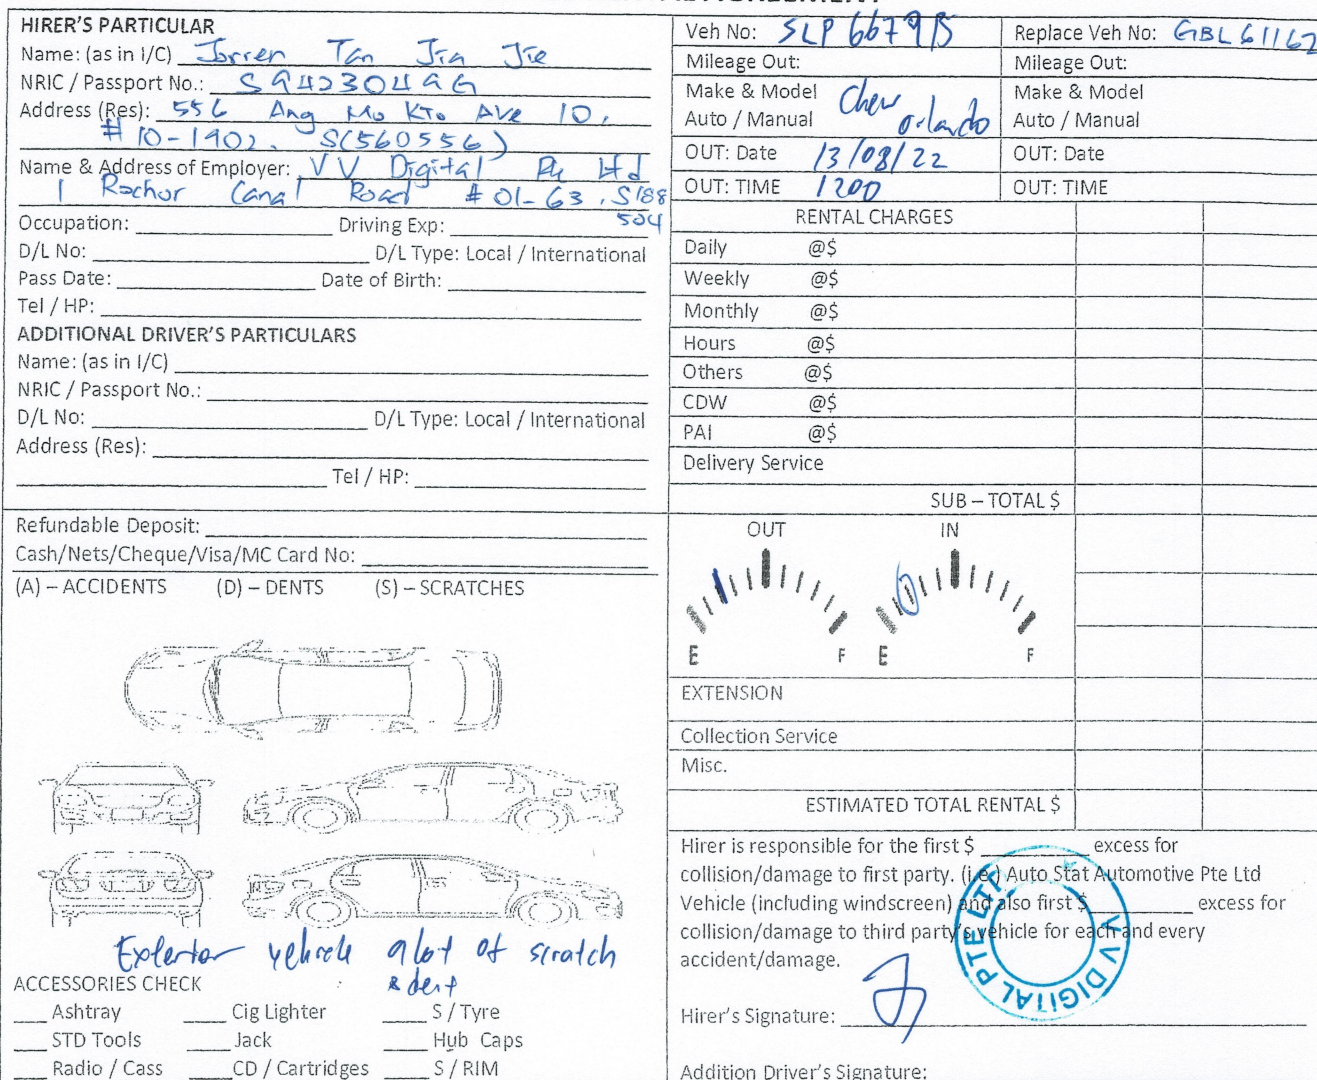 HIRER'S PARTICULAR
Name: (as in I/C) Jorren Tan Jia Jie
NRIC / Passport No.: S9423049G
Address (Res): 556 Ang Mo Kio Ave 10,
#10-1902. S(560556)
Name & Address of Employer: VV Digital Pte Ltd
1 Rochor Canal Road #01-63, S188
504
Occupation: Driving Exp:
D/L No: D/L Type: Local / International
Pass Date: Date of Birth:
Tel / HP:
ADDITIONAL DRIVER'S PARTICULARS
Name: (as in I/C)
NRIC / Passport No.:
D/L No: D/L Type: Local / International
Address (Res):
Tel / HP:
Refundable Deposit:
Cash/Nets/Cheque/Visa/MC Card No:
(A) – ACCIDENTS (D) – DENTS (S) – SCRATCHES
Exterior vehicle a lot of scratch
& dent
ACCESSORIES CHECK
Ashtray Cig Lighter S / Tyre
STD Tools Jack Hub Caps
Radio / Cass CD / Cartridges S / RIM
Veh No: SLP6679B Replace Veh No: GBL6116Z
Mileage Out: Mileage Out:
Make & Model Chev Make & Model
Auto / Manual Orlando Auto / Manual
OUT: Date 13/08/22 OUT: Date
OUT: TIME 1200 OUT: TIME
RENTAL CHARGES
Daily @$
Weekly @$
Monthly @$
Hours @$
Others @$
CDW @$
PAI @$
Delivery Service
SUB – TOTAL $
OUT IN
E F E F
EXTENSION
Collection Service
Misc.
ESTIMATED TOTAL RENTAL $
Hirer is responsible for the first $ excess for
collision/damage to first party. (i.e.) Auto Stat Automotive Pte Ltd
Vehicle (including windscreen) and also first $ excess for
collision/damage to third party's vehicle for each and every
accident/damage.
V V DIGITAL PTE LTD
Hirer's Signature:
Addition Driver's Signature: